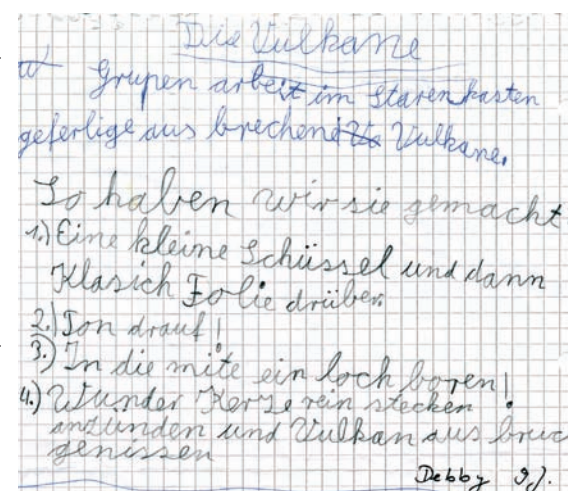 Die Vulkane
Grupen arbeit im Starenkasten
geferlige aus brechend Vulkane.
So haben wir sie gemacht
1.) Eine kleine Schüssel und dann
Klasich Folie drüber.
2.) Ton drauf!
3.) In die mite ein loch boren!
4.) Wunder Kerze rein stecken
anzünden und Vulkan aus bruc
genissen
Debby 9J.